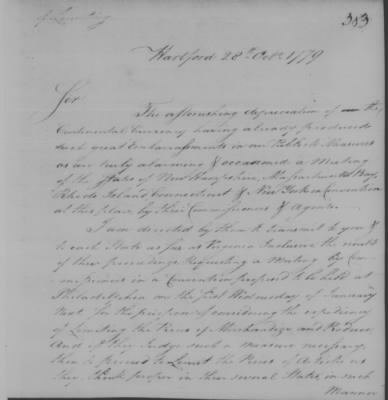 383
Hartford 28th Octr 1779
Sir
The astonishing depreciation of the
Continental Currency having already produced
such great Embarrassments in our Publick Measures
as are truly alarming & occasioned a Meeting
of the States of New Hampshire, Massachusetts Bay,
Rhode Island Connecticut & New York in Convention
at this place, by their Commissioners & Agents.
I am directed by them to transmit to you &
to each State as far as Virginia Inclusive the result
of their proceedings Requesting a Meeting by Com
missioners in a Convention proposed to be held at
Philadelphia on the first Wednesday of January
next, for the purpose of considering the expediency
of Limiting the Prices of Merchandize and Produce
And if they Judge such a measure necessary,
then to proceed to Limit the Prices of Articles as
they think proper in their several States, in such
Manner